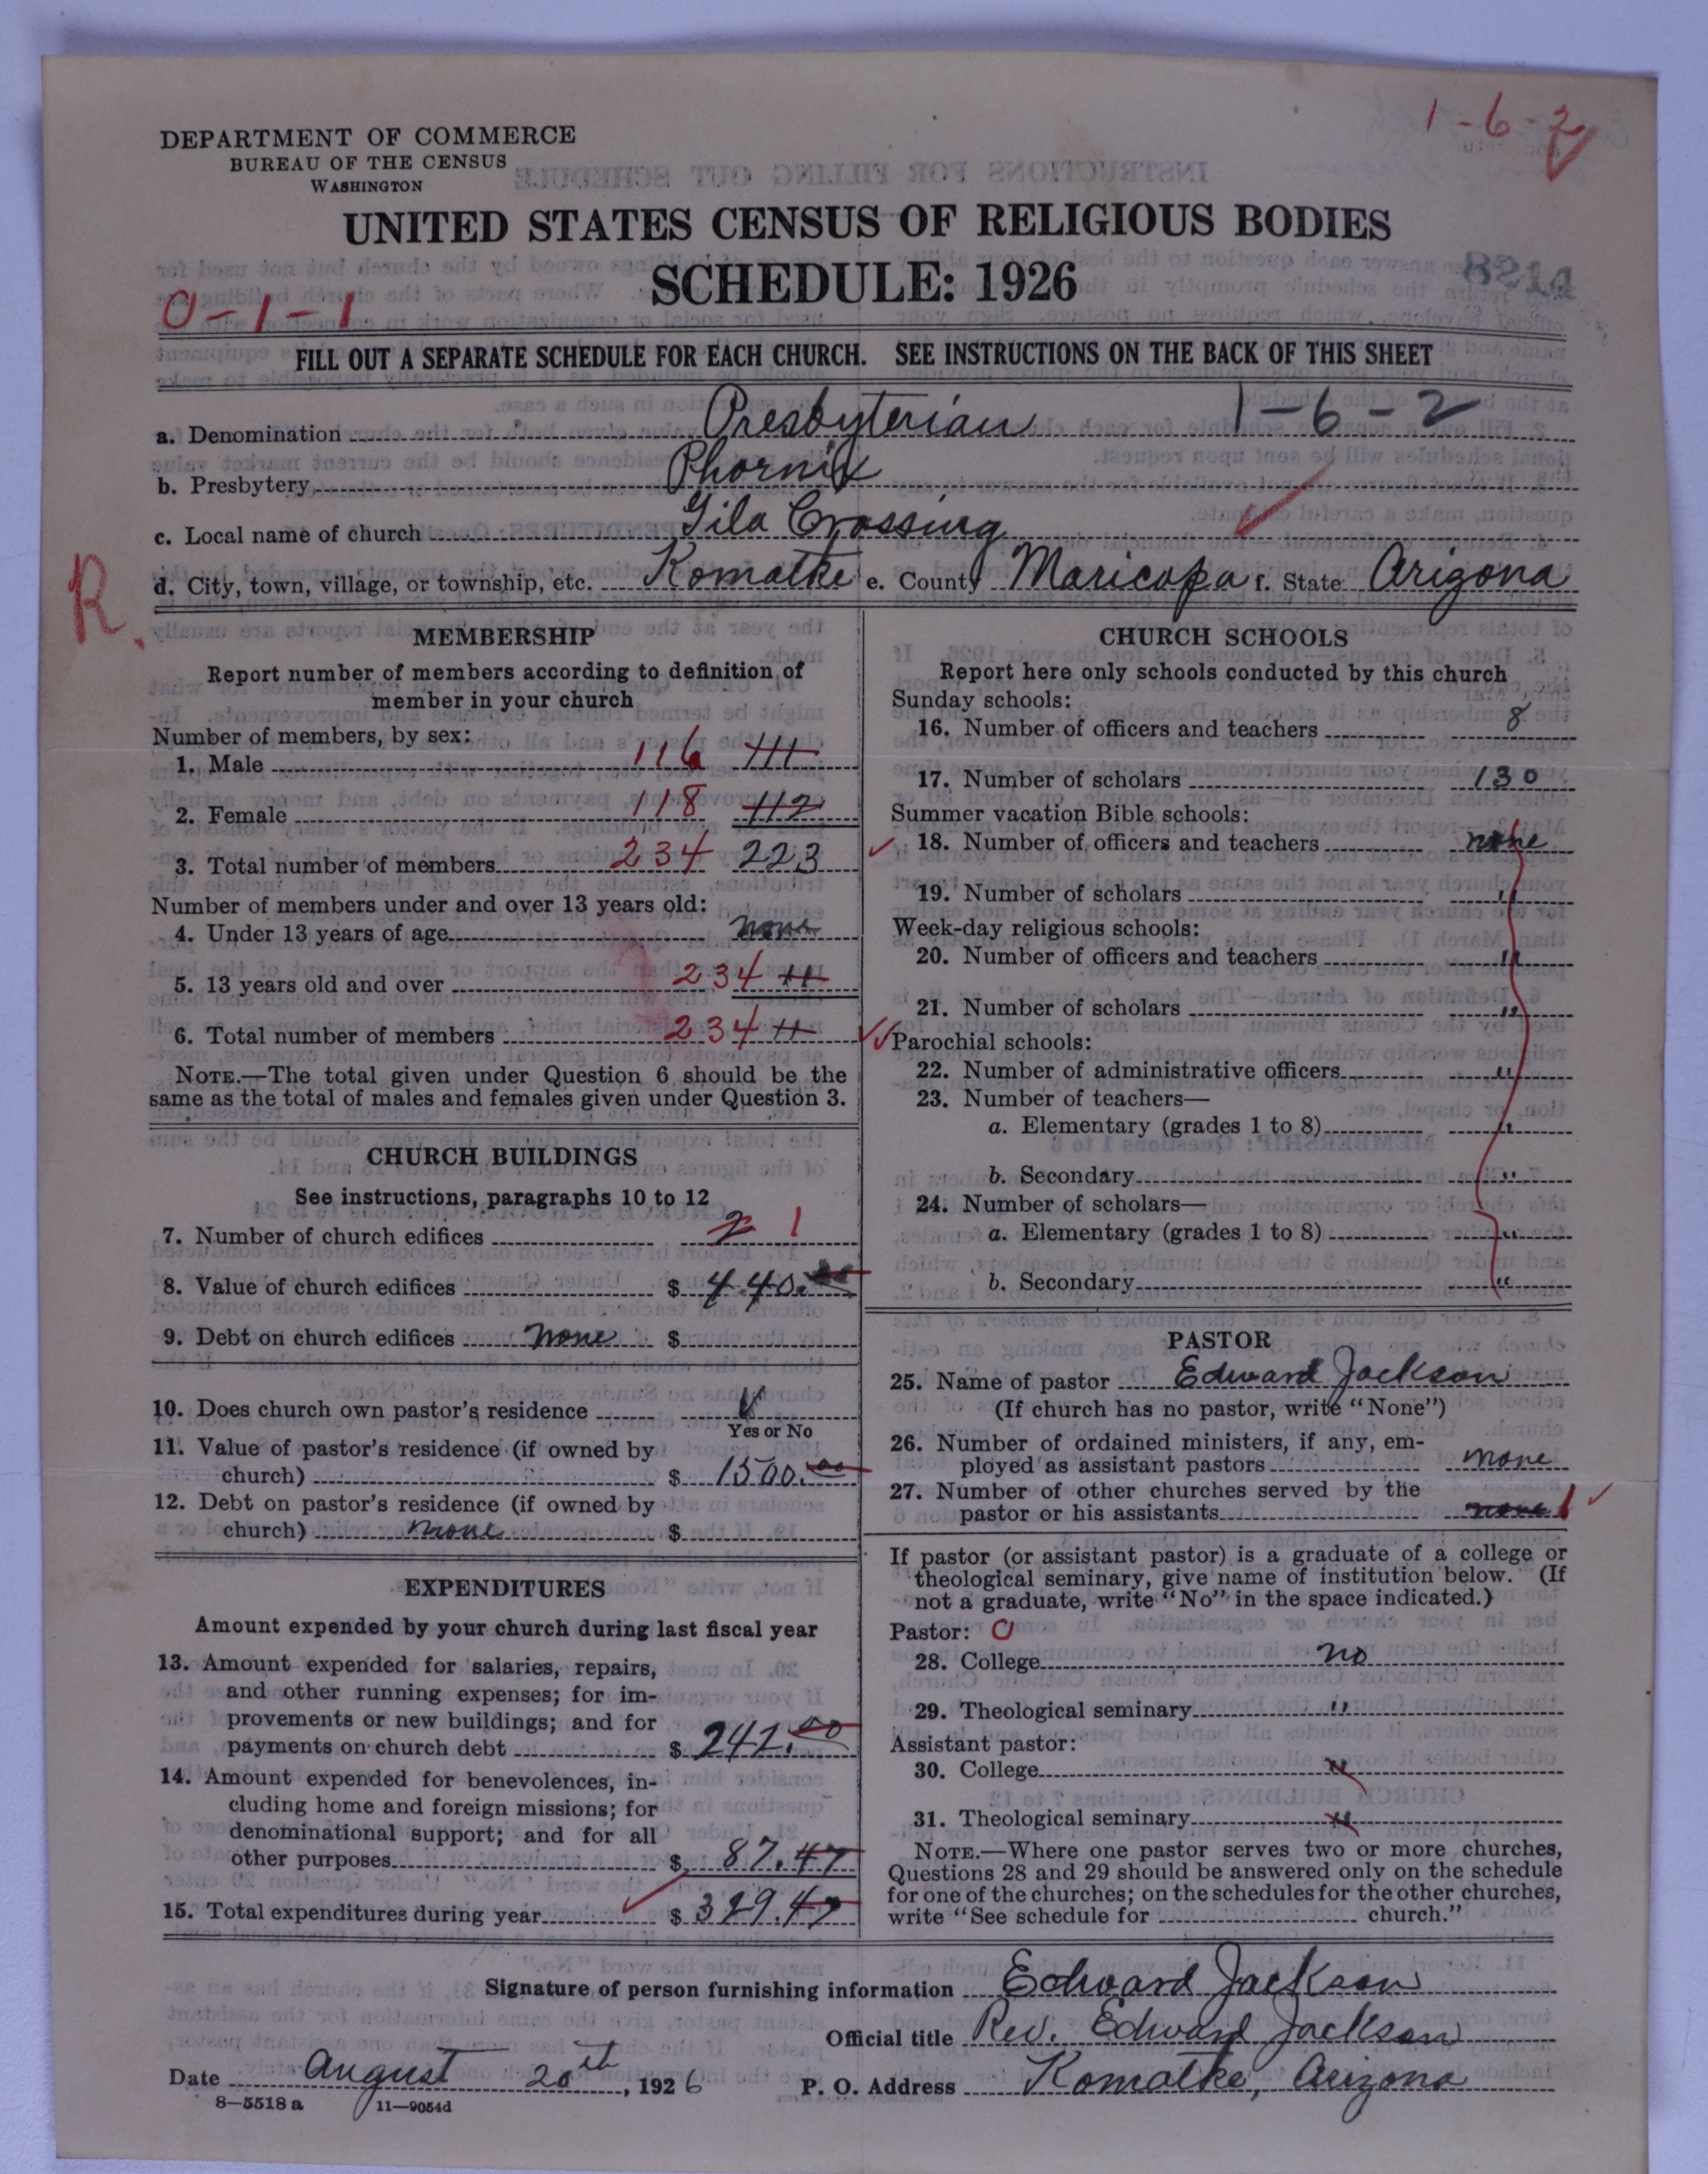 1-6-2
DEPARTMENT OF COMMERCE
BUREAU OF THE CENSUS
WASHINGTON
UNITED STATES CENSUS OF RELIGIOUS BODIES
SCHEDULE: 1926
8214
0-1-1
FILL OUT A SEPARATE SCHEDULE FOR EACH CHURCH. SEE INSTRUCTIONS ON THE BACK OF THIS SHEET
a. Denomination Presbyterian 1-6-2
b. Presbytery Phornix
c. Local name of church Gila Crossing
d. City, town, village, or township, etc. Komatke e. County Maricopa f. State Arizona
R.
MEMBERSHIP
Report number of members according to definition of
member in your church
Number of members, by sex:
1. Male 116 111
2. Female 118 112
3. Total number of members 234 223
Number of members under and over 13 years old:
4. Under 13 years of age none
5. 13 years old and over 234 "
6. Total number of members 234 "
NOTE.—The total given under Question 6 should be the
same as the total of males and females given under Question 3.
CHURCH BUILDINGS
See instructions, paragraphs 10 to 12
7. Number of church edifices 2 1
8. Value of church edifices $ 440.
9. Debt on church edifices none $
10. Does church own pastor's residence
Yes or No
11. Value of pastor's residence (if owned by
church) $ 1500.00
12. Debt on pastor's residence (if owned by
church) none $
EXPENDITURES
Amount expended by your church during last fiscal year
13. Amount expended for salaries, repairs,
and other running expenses; for im-
provements or new buildings; and for
payments on church debt $ 242.00
14. Amount expended for benevolences, in-
cluding home and foreign missions; for
denominational support; and for all
other purposes $ 87.47
15. Total expenditures during year $ 329.47
CHURCH SCHOOLS
Report here only schools conducted by this church
Sunday schools:
16. Number of officers and teachers 8
17. Number of scholars 130
Summer vacation Bible schools:
18. Number of officers and teachers none
19. Number of scholars "
Week-day religious schools:
20. Number of officers and teachers "
21. Number of scholars "
Parochial schools:
22. Number of administrative officers "
23. Number of teachers—
a. Elementary (grades 1 to 8) "
b. Secondary "
24. Number of scholars—
a. Elementary (grades 1 to 8) "
b. Secondary "
PASTOR
25. Name of pastor Edward Jackson
(If church has no pastor, write "None")
26. Number of ordained ministers, if any, em-
ployed as assistant pastors none
27. Number of other churches served by the
pastor or his assistants none 1
If pastor (or assistant pastor) is a graduate of a college or
theological seminary, give name of institution below. (If
not a graduate, write "No" in the space indicated.)
Pastor: 0
28. College no
29. Theological seminary "
Assistant pastor:
30. College "
31. Theological seminary "
NOTE.—Where one pastor serves two or more churches,
Questions 28 and 29 should be answered only on the schedule
for one of the churches; on the schedules for the other churches,
write "See schedule for church."
Signature of person furnishing information Edward Jackson
Official title Rev. Edward Jackson
Date August 20th, 1926 P. O. Address Komatke, Arizona
8—5518 a 11—9054d